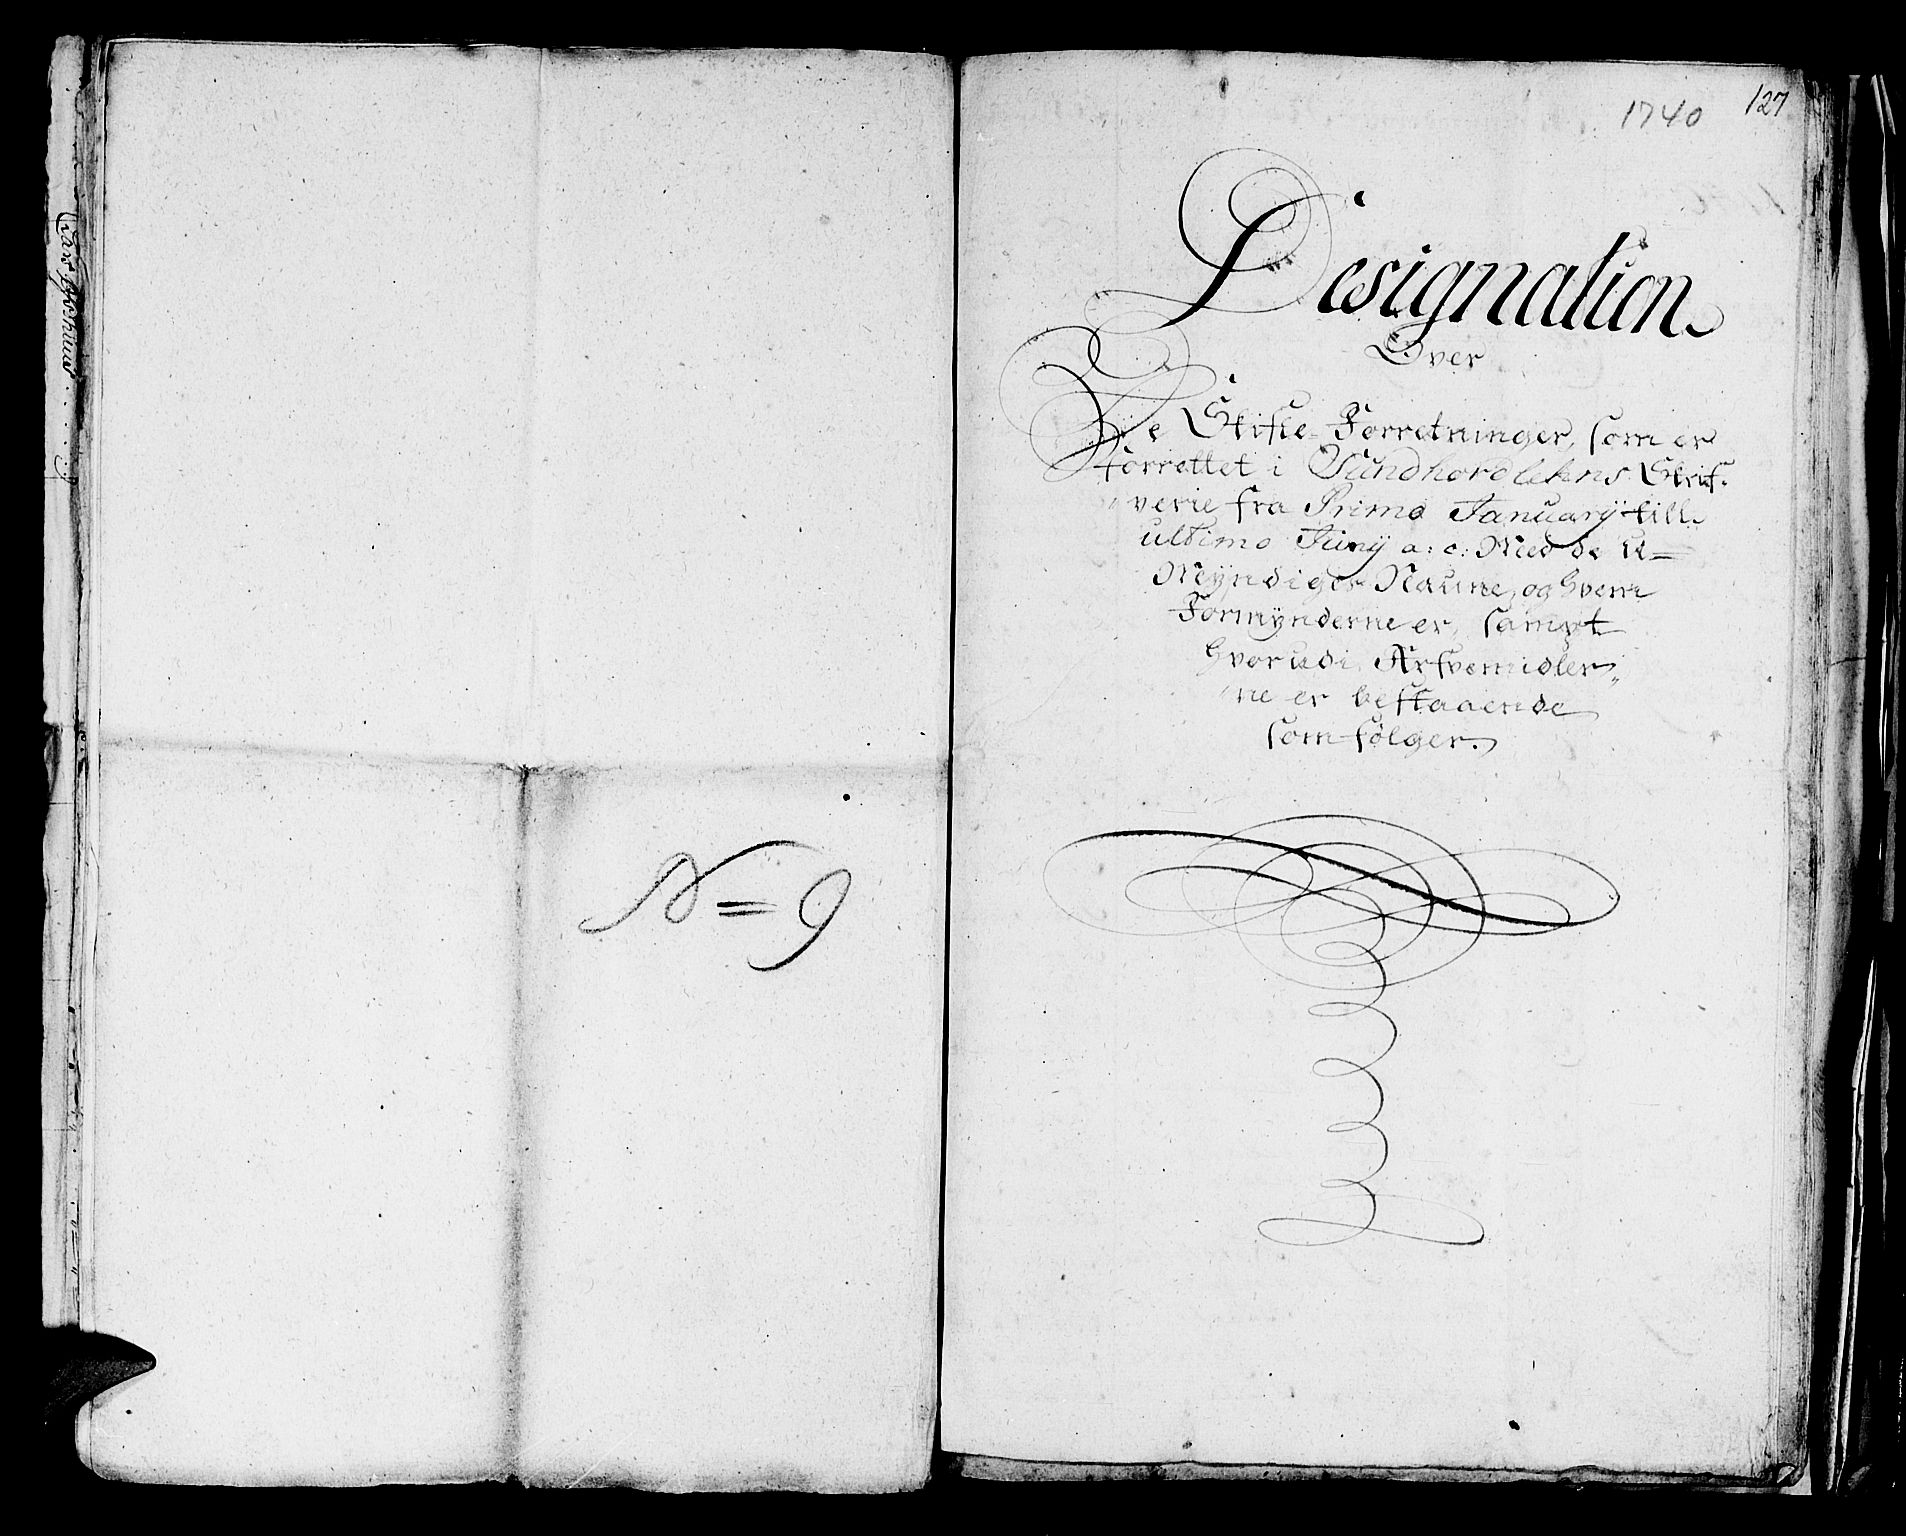 N = 9
1740 127
Designation
Over
De Skifte-Forretninger, som er
forrettet i Sundhordlehns Skrif-
"verie fra Primo Januarÿ till
ultimo Junÿ a: c: Med de U-
Mÿndiges Naune, og hvem
Formÿnderne er, sampt
hvorudi Arfvemidler„
"ne er bestaaende
som følger.